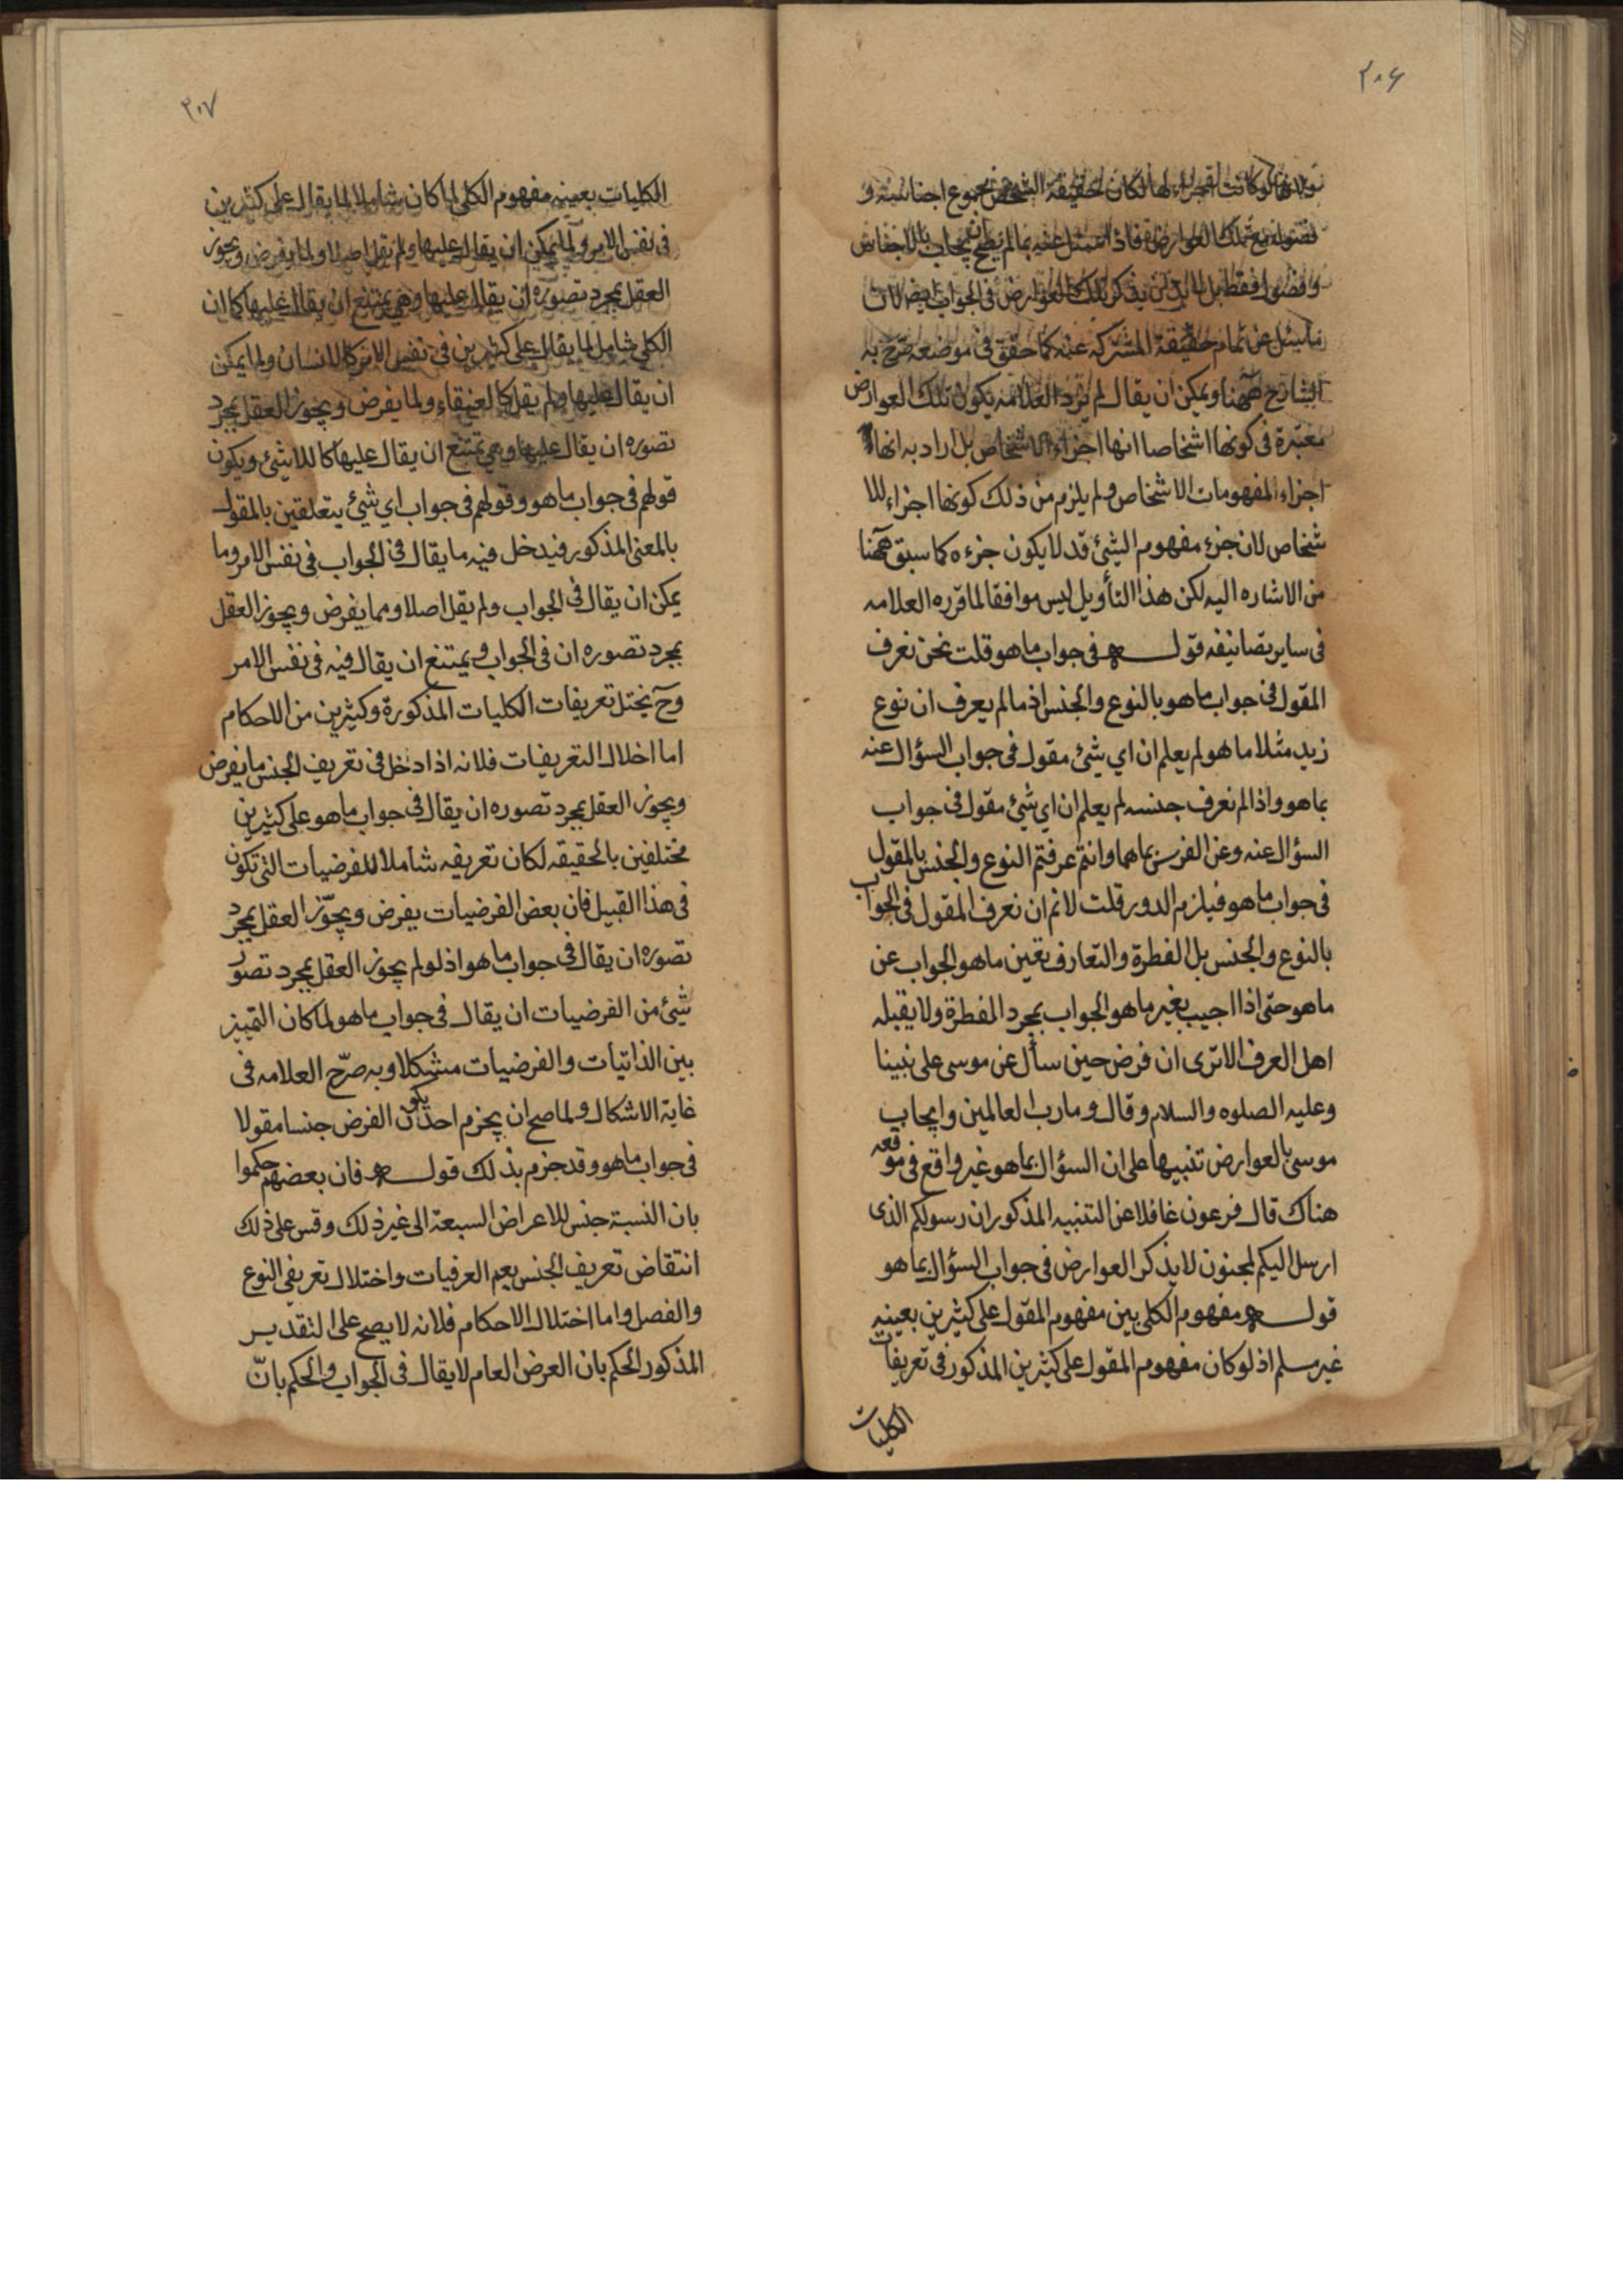 ٢٠٦
ولانها لو كانت اجزاء لها لكان حقيقة الشخص مجموع اجناسه و
فصوله مع تلك العوارض فاذا سئل عنه بما لم يصح ان يجاب بالاجناس
وفصول فقط بل لابد من يذكر تلك العوارض في الجواب ايضا لان
ما يسئل عن تمام حقيقة المشتركه عنه كما حقق في موضعه صرح به
الشارح ههنا ويمكن ان يقال لم يرد العلامه يكون تلك العوارض
معتبرة في كونها اشخاصا انها اجزاء الاشخاص بل اراد به انها
اجزاء المفهومات الاشخاص ولم يلزم من ذلك كونها اجزاء للا
شخاص لان جزء مفهوم الشئ قد لا يكون جزءه كما سبق ههنا
من الاشاره اليه لكن هذا التأويل ليس موافقا لما قرره العلامه
في ساير تصانيفه قوله في جواب ما هو قلت نحن نعرف
المقول في جواب ما هو بالنوع والجنس اذ ما لم يعرف ان نوع
زيد مثلا ما هو لم يعلم ان اي شئ مقول في جواب السؤال عنه
بما هو واذا لم نعرف جنسه لم يعلم ان اي شئ مقول في جواب
السؤال عنه وعن الفرس بما هما وانتم عرفتم النوع والجنس بالمقول
في جواب ما هو فيلزم الدور قلت لانم ان نعرف المقول في الجواب
بالنوع والجنس بل الفطرة والتعارف تعين ما هو الجواب عن
ما هو حتى اذا اجيب بغير ما هو الجواب بمجرد الفطرة ولا يقبله
اهل العرف الا ترى ان فرض حين سأل عن موسى على نبينا
وعليه الصلوه والسلام وقال وما رب العالمين وايجاب
موسى بالعوارض تنبيها على ان السؤال بما هو غير واقع في موقعه
هناك قال فرعون غافلا عن التنبيه المذكور ان رسولكم الذى
ارسل اليكم لمجنون لا يذكر العوارض في جواب السؤال بما هو
قوله مفهوم الكلى بين مفهوم المقول على كثيرين بعينه
غير سلم اذ لو كان مفهوم المقول على كثيرين المذكور في تعريفات
الكليات
٢٠٧
الكليات بعينه مفهوم الكلي لما كان شاملا لما يقال على كثيرين
في نفس الامر ولما يمكن ان يقال عليها ولم يقل اصلا ولما يفرض ويجوز
العقل بمجرد تصوره ان يقال عليها وهي يمتنع ان يقال عليها كما ان
الكلي شامل لما يقال على كثيرين في نفس الامر كالانسان ولما يمكن
ان يقال عليها ولم يقل كالعنقاء ولما يفرض ويجوز العقل بمجرد
تصوره ان يقال عليها وهي يمتنع ان يقال عليها كاللاشئ ويكون
قولهم في جواب ما هو وقولهم في جواب اي شئ يتعلقين بالمقول
بالمعنى المذكور فيدخل فيه ما يقال في الجواب في نفس الامر وما
يمكن ان يقال في الجواب ولم يقل اصلا ومما يفرض ويجوز العقل
بمجرد تصوره ان في الجواب ويمتنع ان يقال فيه في نفس الامر
وح يختل تعريفات الكليات المذكورة وكثيرين من الاحكام
اما اخلال التعريفات فلانه اذا دخل في تعريف الجنس ما يفرض
ويجوز العقل بمجرد تصوره ان يقال في جواب ما هو على كثيرين
مختلفين بالحقيقه لكان تعريفه شاملا للفرضيات التي تكون
في هذا القبيل فان بعض الفرضيات يفرض ويجوّز العقل بمجرد
تصوره ان يقال في جواب ما هو اذ لو لم يجوز العقل بمجرد تصور
شئ من الفرضيات ان يقال في جواب ما هو لما كان التميز
بين الذاتيات والفرضيات مشكلا وبه صرّح العلامه في
غاية الاشكال ولما صح ان يجزم احد يكون الفرض جنسا مقولا
في جواب ما هو وقد جزم بذلك قوله فان بعضهم حكموا
بان النسبة جنس للاعراض السبعة الى غير ذلك وقس على ذلك
انتقاض تعريف الجنس يعم العرفيات واختلال تعريفي النوع
والفصل واما اختلال الاحكام فلانه لا يصح على التقدير
المذكور الحكم بان العرض العام لا يقال في الجواب والحكم بانّ